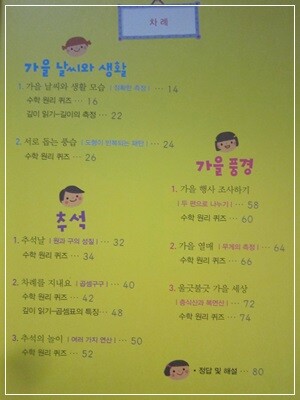 차례
가을 날씨와 생활
1. 가을 날씨와 생활 모습 | 정확한 측정 | … 14
수학 원리 퀴즈 … 16
깊이 읽기-길이의 측정 … 22
2. 서로 돕는 풍습 | 모양이 반복되는 패턴 | … 24
수학 원리 퀴즈 … 26
추석
1. 추석날 | 원과 구의 성질 | … 32
수학 원리 퀴즈 … 34
2. 차례를 지내요 | 곱셈구구 | … 40
수학 원리 퀴즈 … 42
깊이 읽기-곱셈표의 특징 … 48
3. 추석의 놀이 | 여러 가지 연산 | … 50
수학 원리 퀴즈 … 52
가을 풍경
1. 가을 행사 조사하기
| 두 편으로 나누기 | … 58
수학 원리 퀴즈 … 60
2. 가을 열매 | 무게의 측정 | … 64
수학 원리 퀴즈 … 66
3. 울긋불긋 가을 세상
| 혼식산과 복면산 | … 72
수학 원리 퀴즈 … 74
• 정답 및 해설 … 80